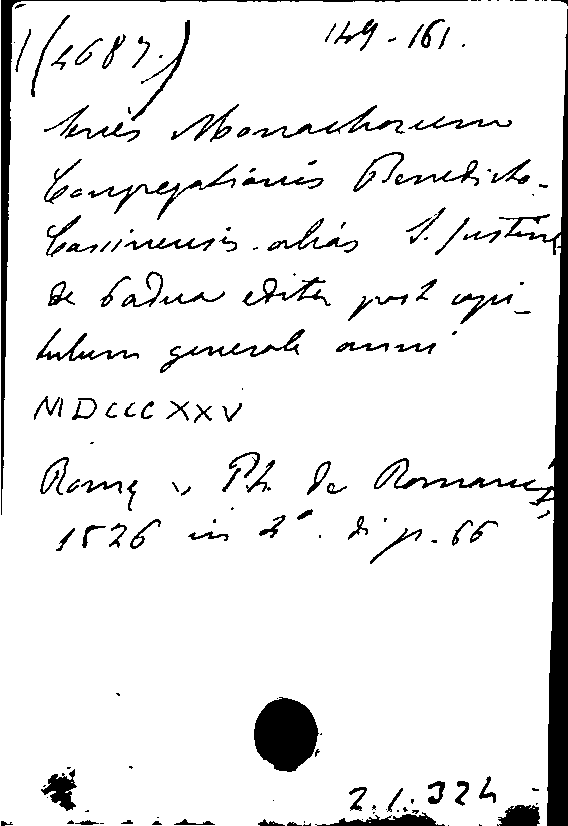 1(4687.) 149-161.
Series Monachorum
Congregationis Benedicto-
Cassinensis alias S. Justinae
de Padua edita post capi-
tulum generale anni
MDCCCXXV
Romę, Ph. De Romanis,
1826 in 4°. di p. 66
2.1.324